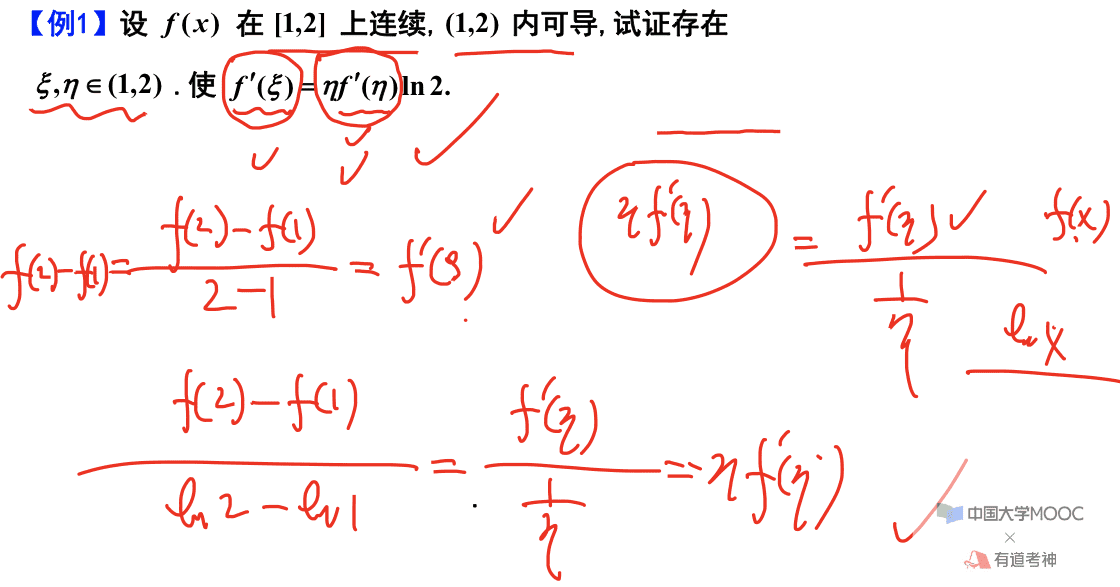 【例1】设 f(x) 在 [1,2] 上连续, (1,2) 内可导, 试证存在
ξ,η∈(1,2) . 使 f′(ξ)=ηf′(η)ln 2.
f(2)-f(1)= \frac{f(2)-f(1)}{2-1} = f′(ξ)
ηf′(η) = \frac{f′(η)}{\frac{1}{η}}
f(x)
ln x
\frac{f(2)-f(1)}{ln 2 - ln 1} = \frac{f′(η)}{\frac{1}{η}} = ηf′(η)
中国大学MOOC
×
有道考神